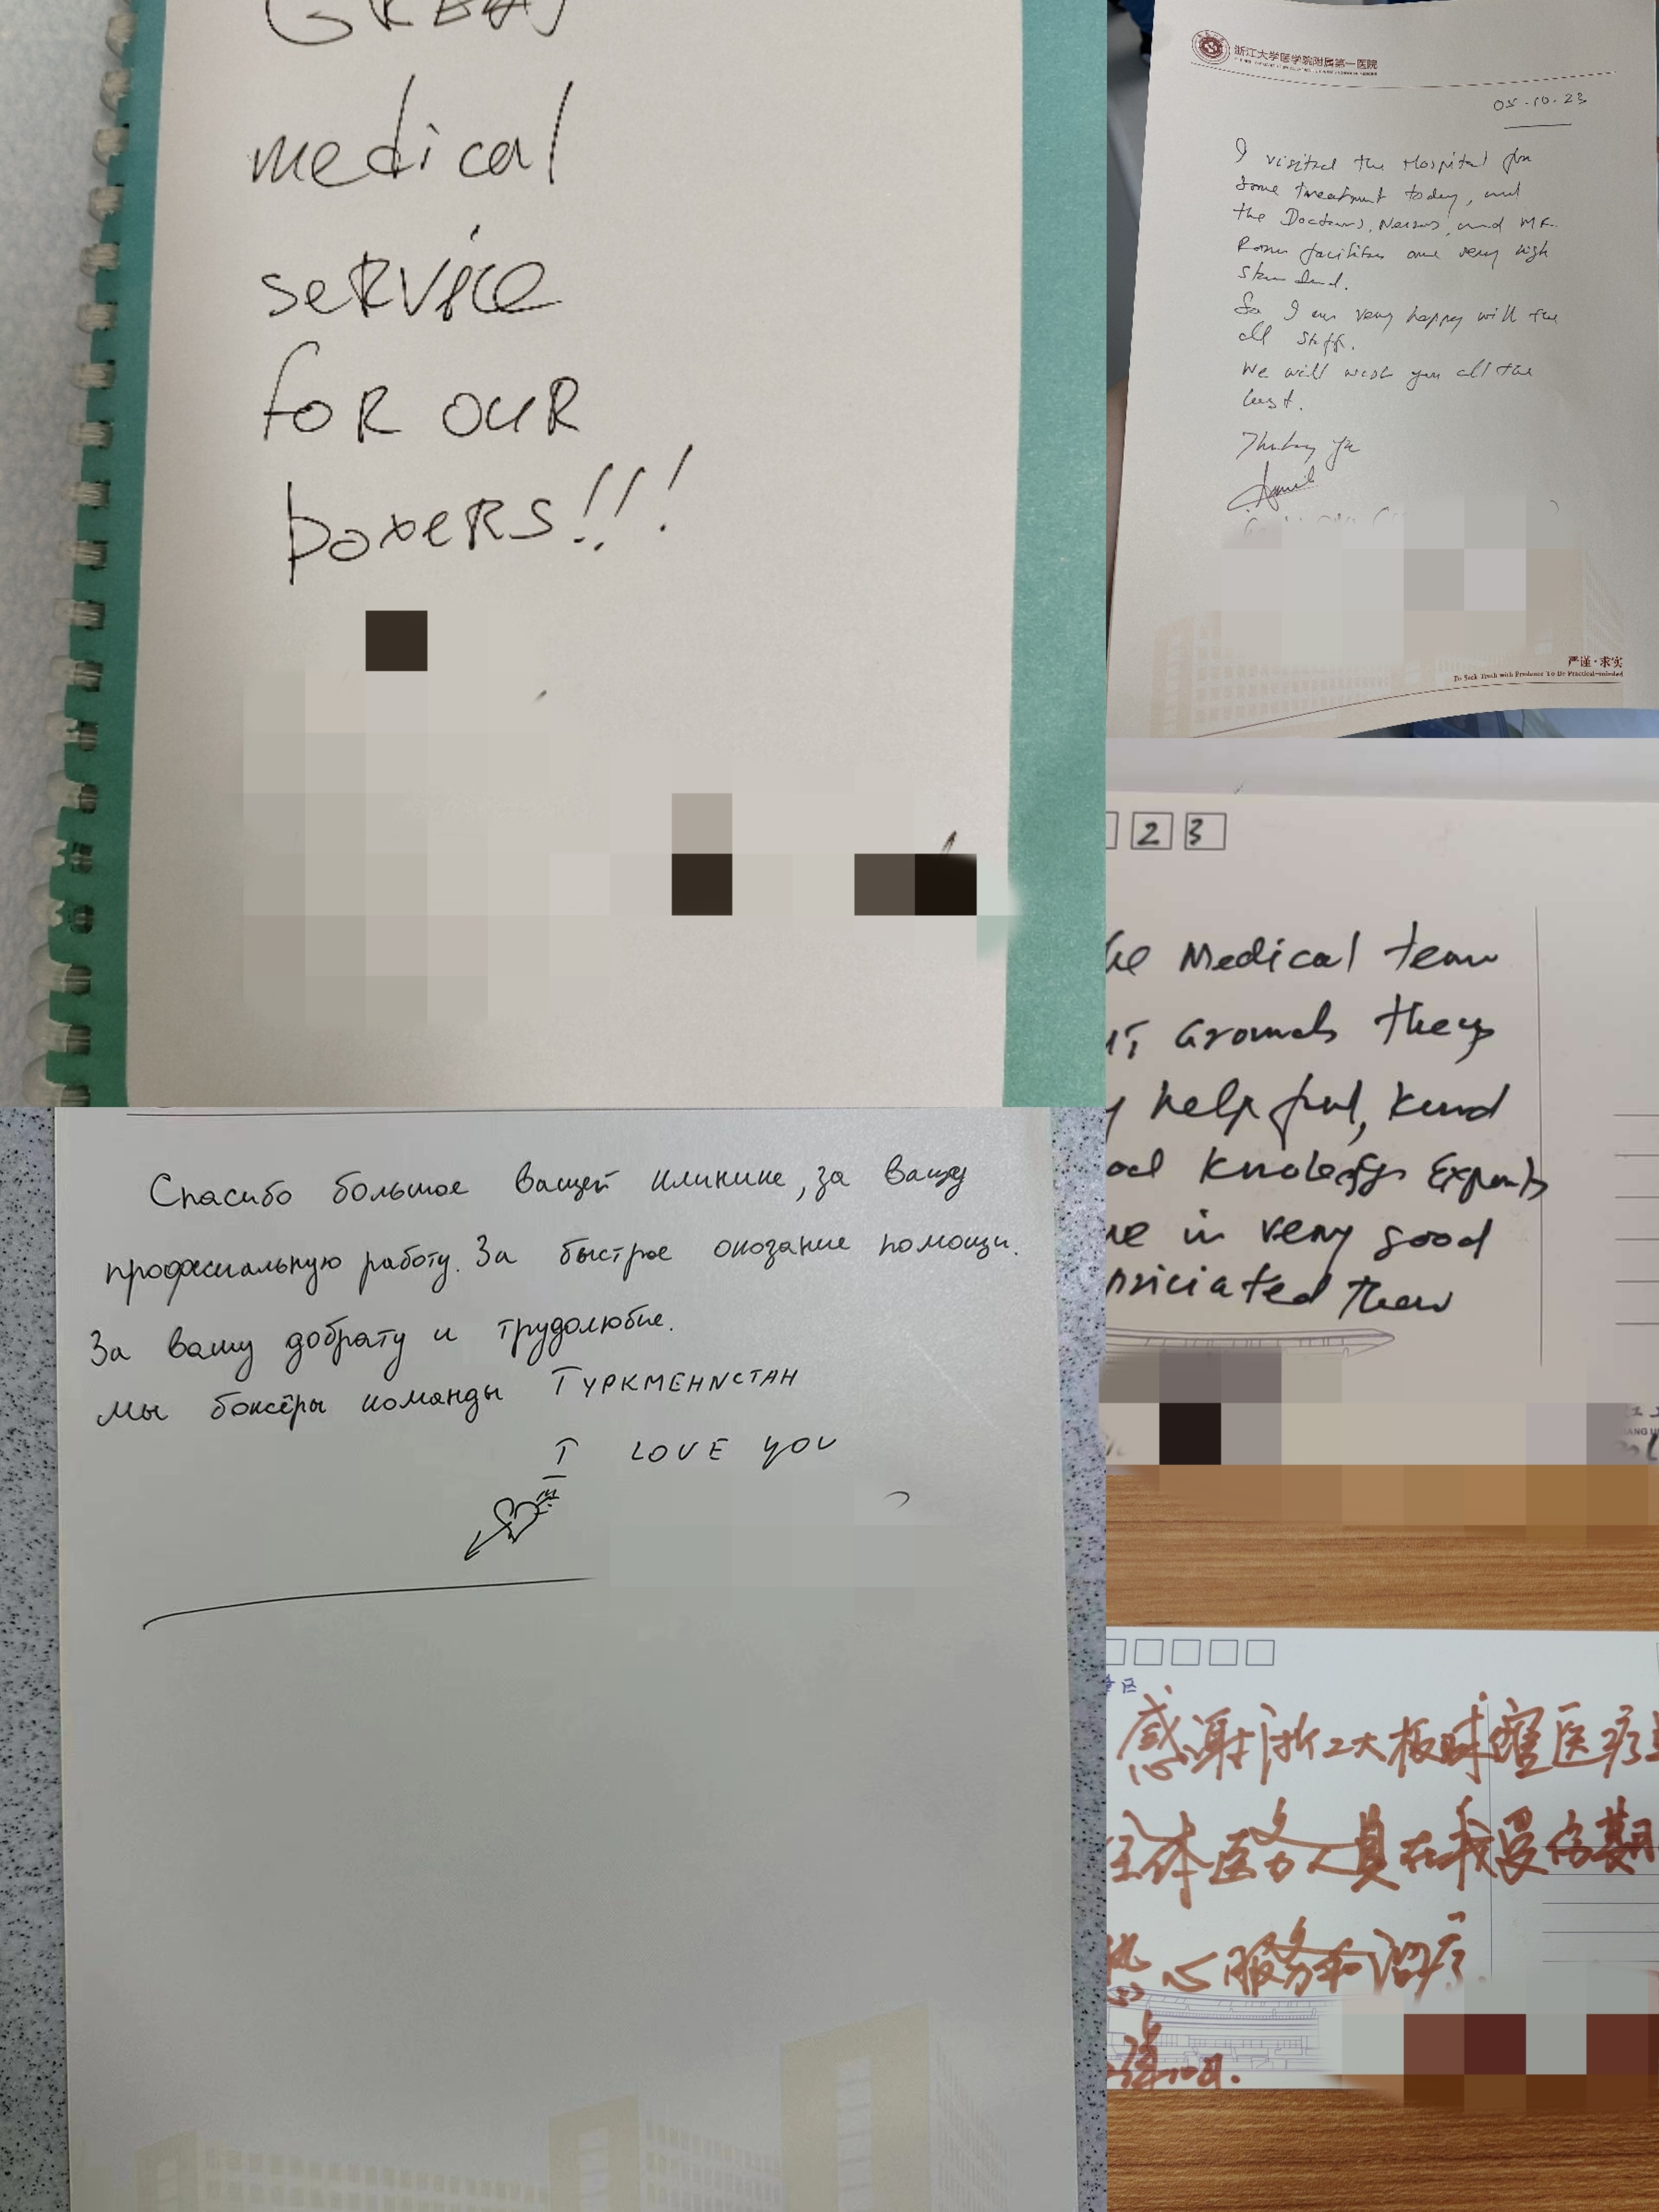 GREAT
medical
service
for our
boxers!!!
浙江大学医学院附属第一医院
05.10.23
I visited the Hospital for
some treatment today, and
the Doctors, Nurses, and
Room facilities are very high
standard.
So I am very happy will the
all staff.
We will wish you all the
best.
严谨·求实
To Seek Truth with Prudence To Be Practical-minded
2 3
Medical team
Grounds they
helpful, kind
Experts
in very good
Спасибо большое вашей клинике, за вашу
професиальную работу. За быстрое оказание помощи.
За вашу доброту и трудолюбие.
Мы боксёры команды ТУРКМЕНИСТАН
I LOVE YOU
感谢浙工大板球馆医疗
全体医务人员在我受伤期
热心服务和治疗.